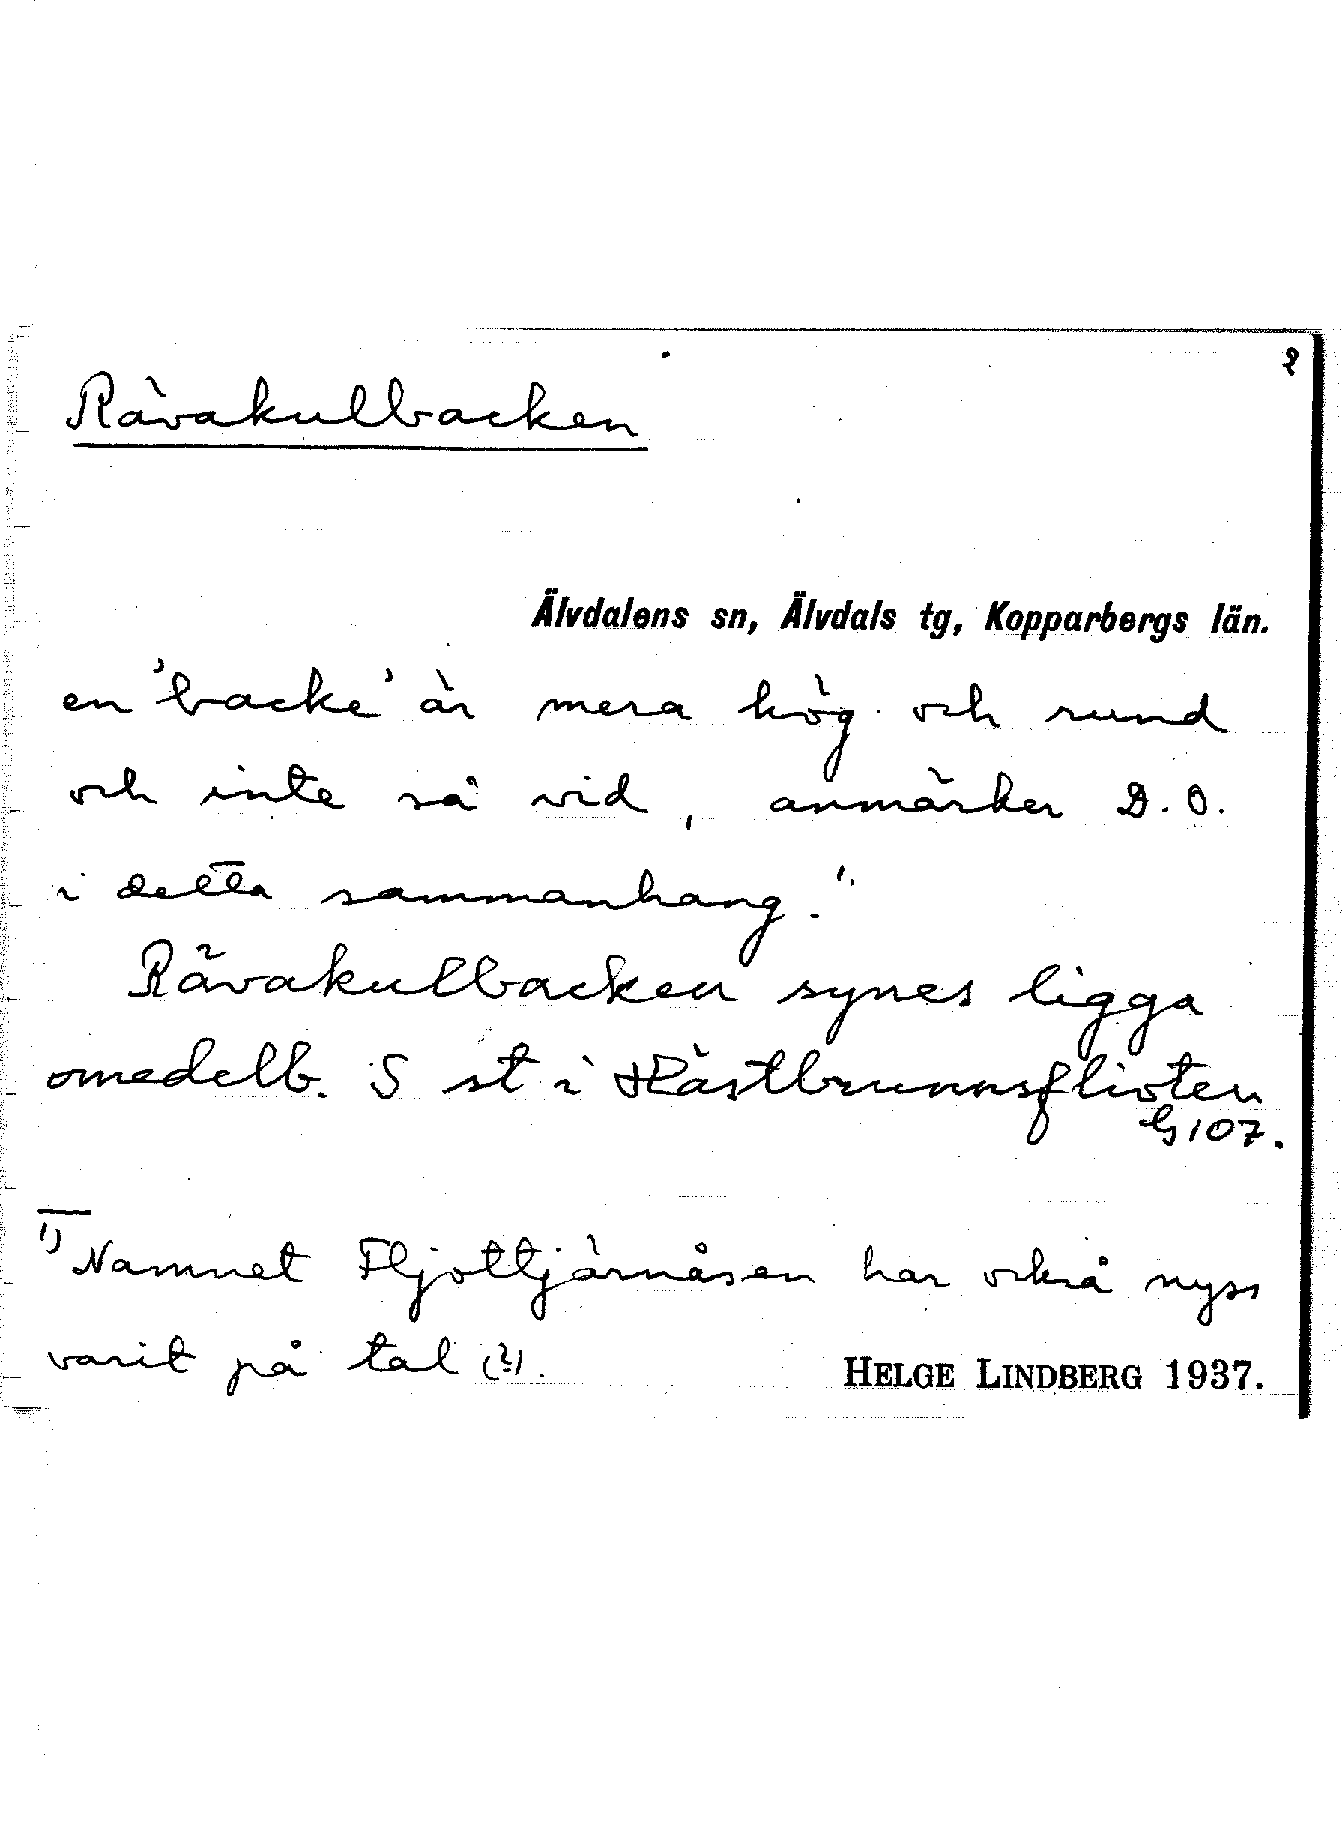 2
Rävakulbacken
Älvdalens sn, Älvdals tg, Kopparbergs län.
en 'backe' är mera hög och rund
och inte så vid, anmärker D.O.
i detta sammanhang."
Rävakulbacken synes ligga
omedelb. S st i Hästbrunnsflioten
G 107.
1) Namnet Fljottjärnåsen har också nyss
varit på tal (?).
HELGE LINDBERG 1937.